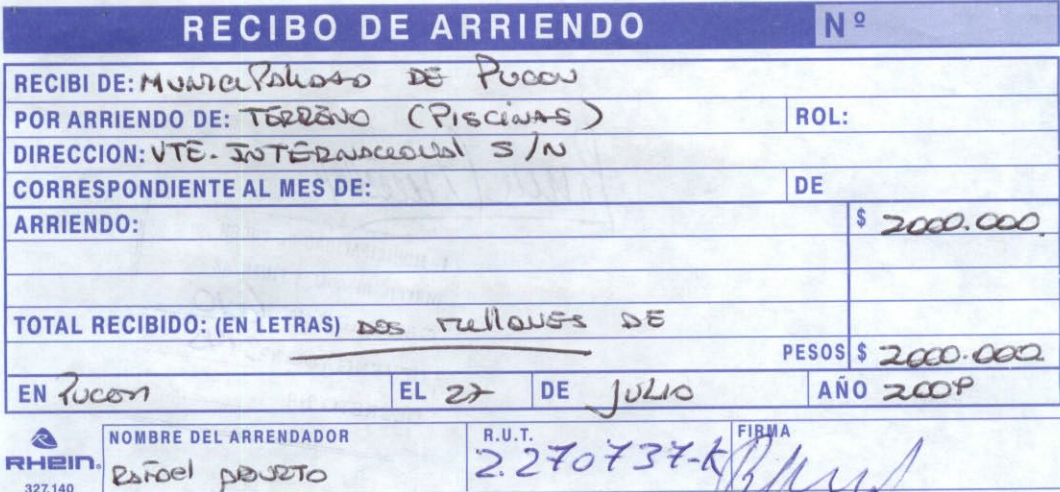 RECIBO DE ARRIENDO Nº
RECIBI DE: Municipalidad DE Pucon
POR ARRIENDO DE: TERRENO (PISCINAS) ROL:
DIRECCION: VTE. INTERNACIONAL S/N
CORRESPONDIENTE AL MES DE: DE
ARRIENDO: $ 2000.000.
TOTAL RECIBIDO: (EN LETRAS) DOS millones DE
PESOS $ 2000.000
EN Pucon EL 27 DE JULIO AÑO 2009
RHEIN. NOMBRE DEL ARRENDADOR R.U.T. FIRMA
327.140 Rafael 2.270737-K